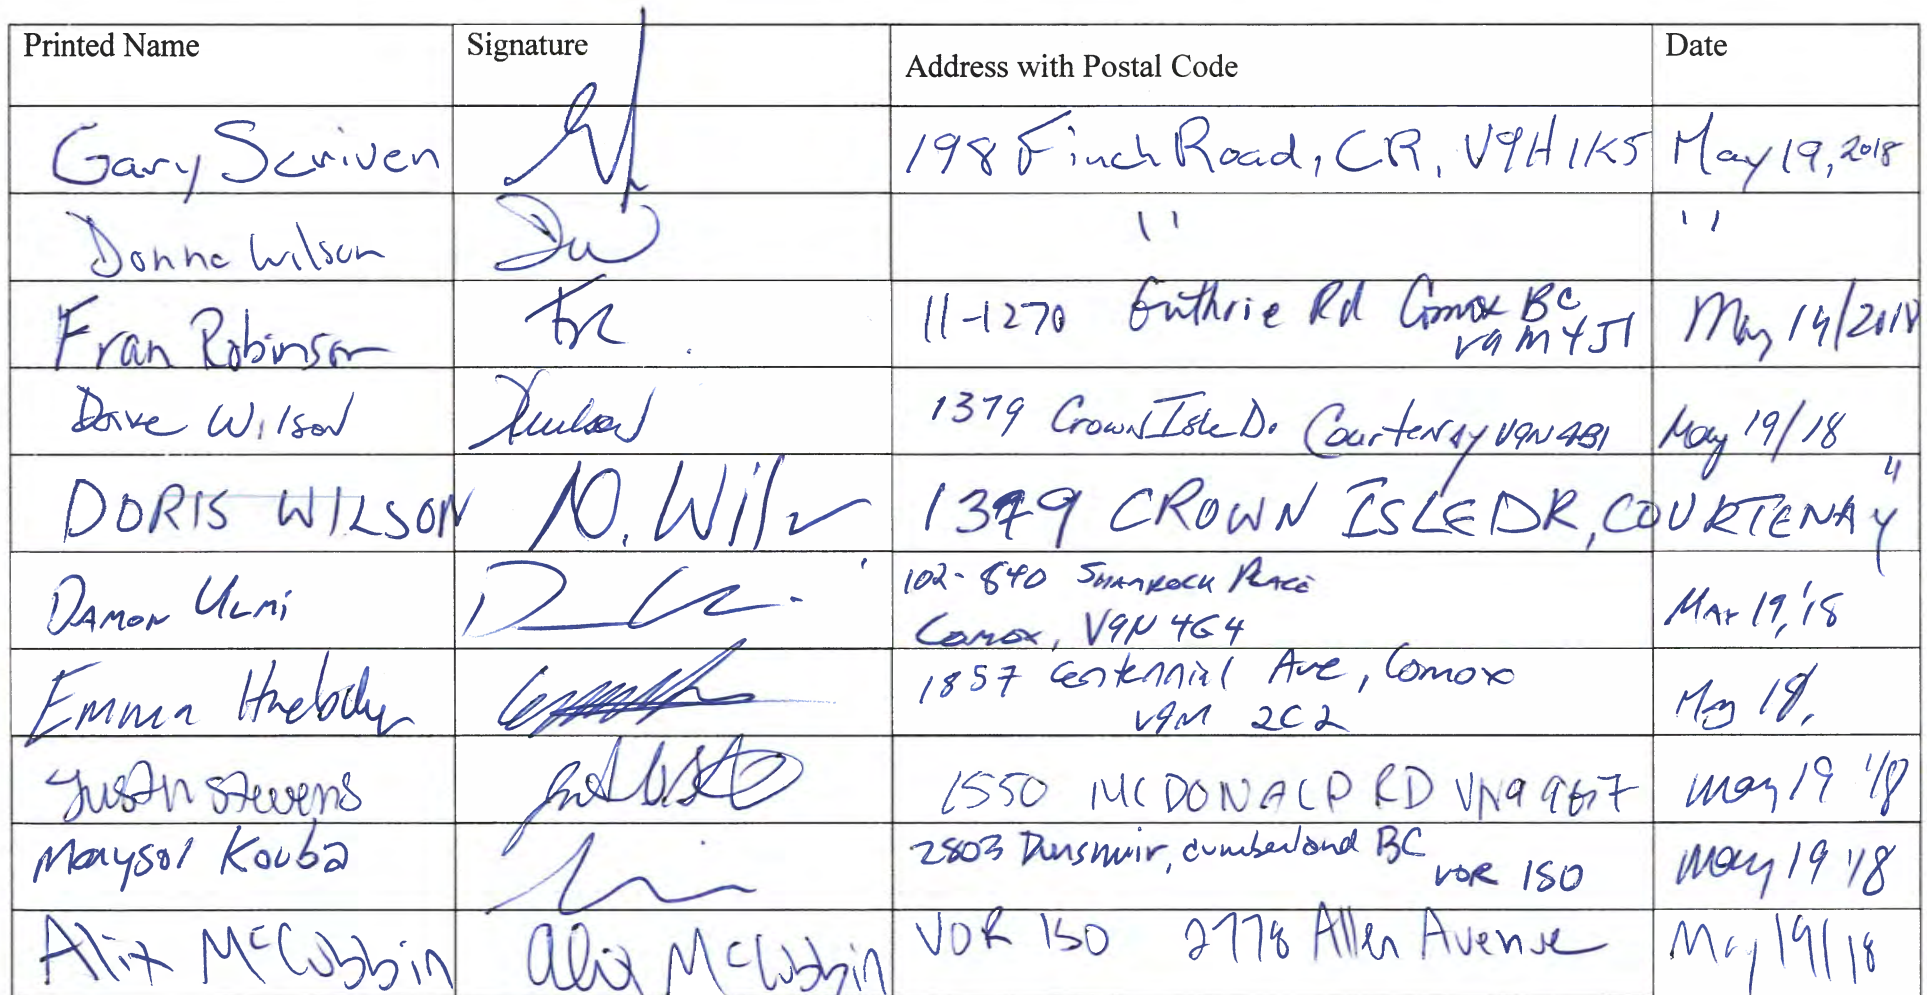 Printed Name Signature Address with Postal Code Date
Gary Scriven 198 Finch Road, CR, V9H 1K5 May 19, 2018
Donna Wilson " "
Fran Robinson FR 11-1270 Guthrie Rd Comox BC May 19/2018
V9M 4J1
Dave Wilson 1379 Crown Isle D. Courtenay V9N 4B1 May 19/18
DORIS WILSON D. Wils 1379 CROWN ISLE DR, COURTENAY "
DAMON ULMI 102-840 SHAMROCK PLACE
COMOX, V9N 4G4 MAY 19, '18
Emma 1857 Centennial Ave, Comox
V9M 2C2 May 19,
Justin Stevens 1550 MCDONALD RD VN9 9G7 May 19 '18
Marysol Kouba 2803 Dunsmuir, Cumberland BC
V0R 1S0 May 19 '18
Alix McCubbin Alix McCubbin V0R 1S0 2778 Allen Avenue May 19/18